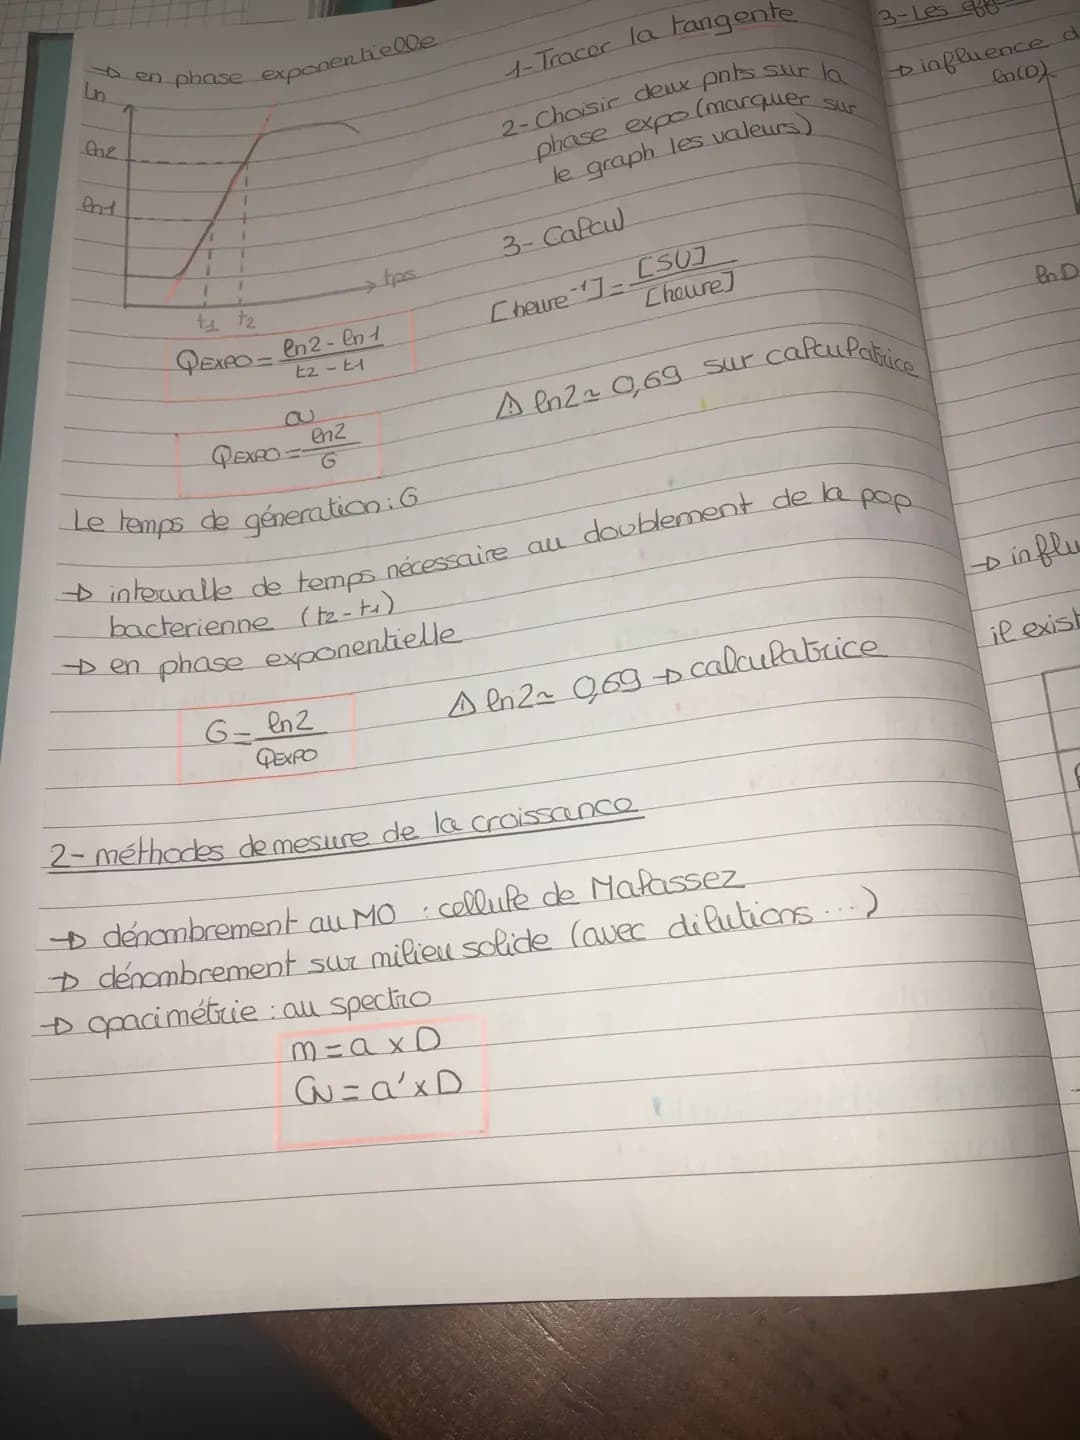 → en phase exponentielle
Ln
ln2
ln1
t1 t2
tps
QEXPO = ln2 - ln1 / t2 - t1
ou
QEXPO = ln2 / G
1- Tracer la tangente
2- Choisir deux pnts sur la
phase expo (marquer sur
le graph les valeurs)
3- Calcul
[heure⁻¹] = [SU] / [heure]
⚠ ln2 ≈ 0,69 sur calculatrice
Le temps de géneration : G
→ intervalle de temps nécessaire au doublement de la pop
bacterienne (t2-t1)
→ en phase exponentielle
G = ln2 / QEXPO
⚠ ln2 ≈ 0,69 → calculatrice
2- méthodes de mesure de la croissance
→ dénombrement au MO : cellule de Malassez
→ dénombrement sur milieu solide (avec dilutions ...)
→ opacimétrie : au spectro
m = a x D
CN = a' x D
3- Les
→ influence
ln(D)
ln D
→ influ
il exist